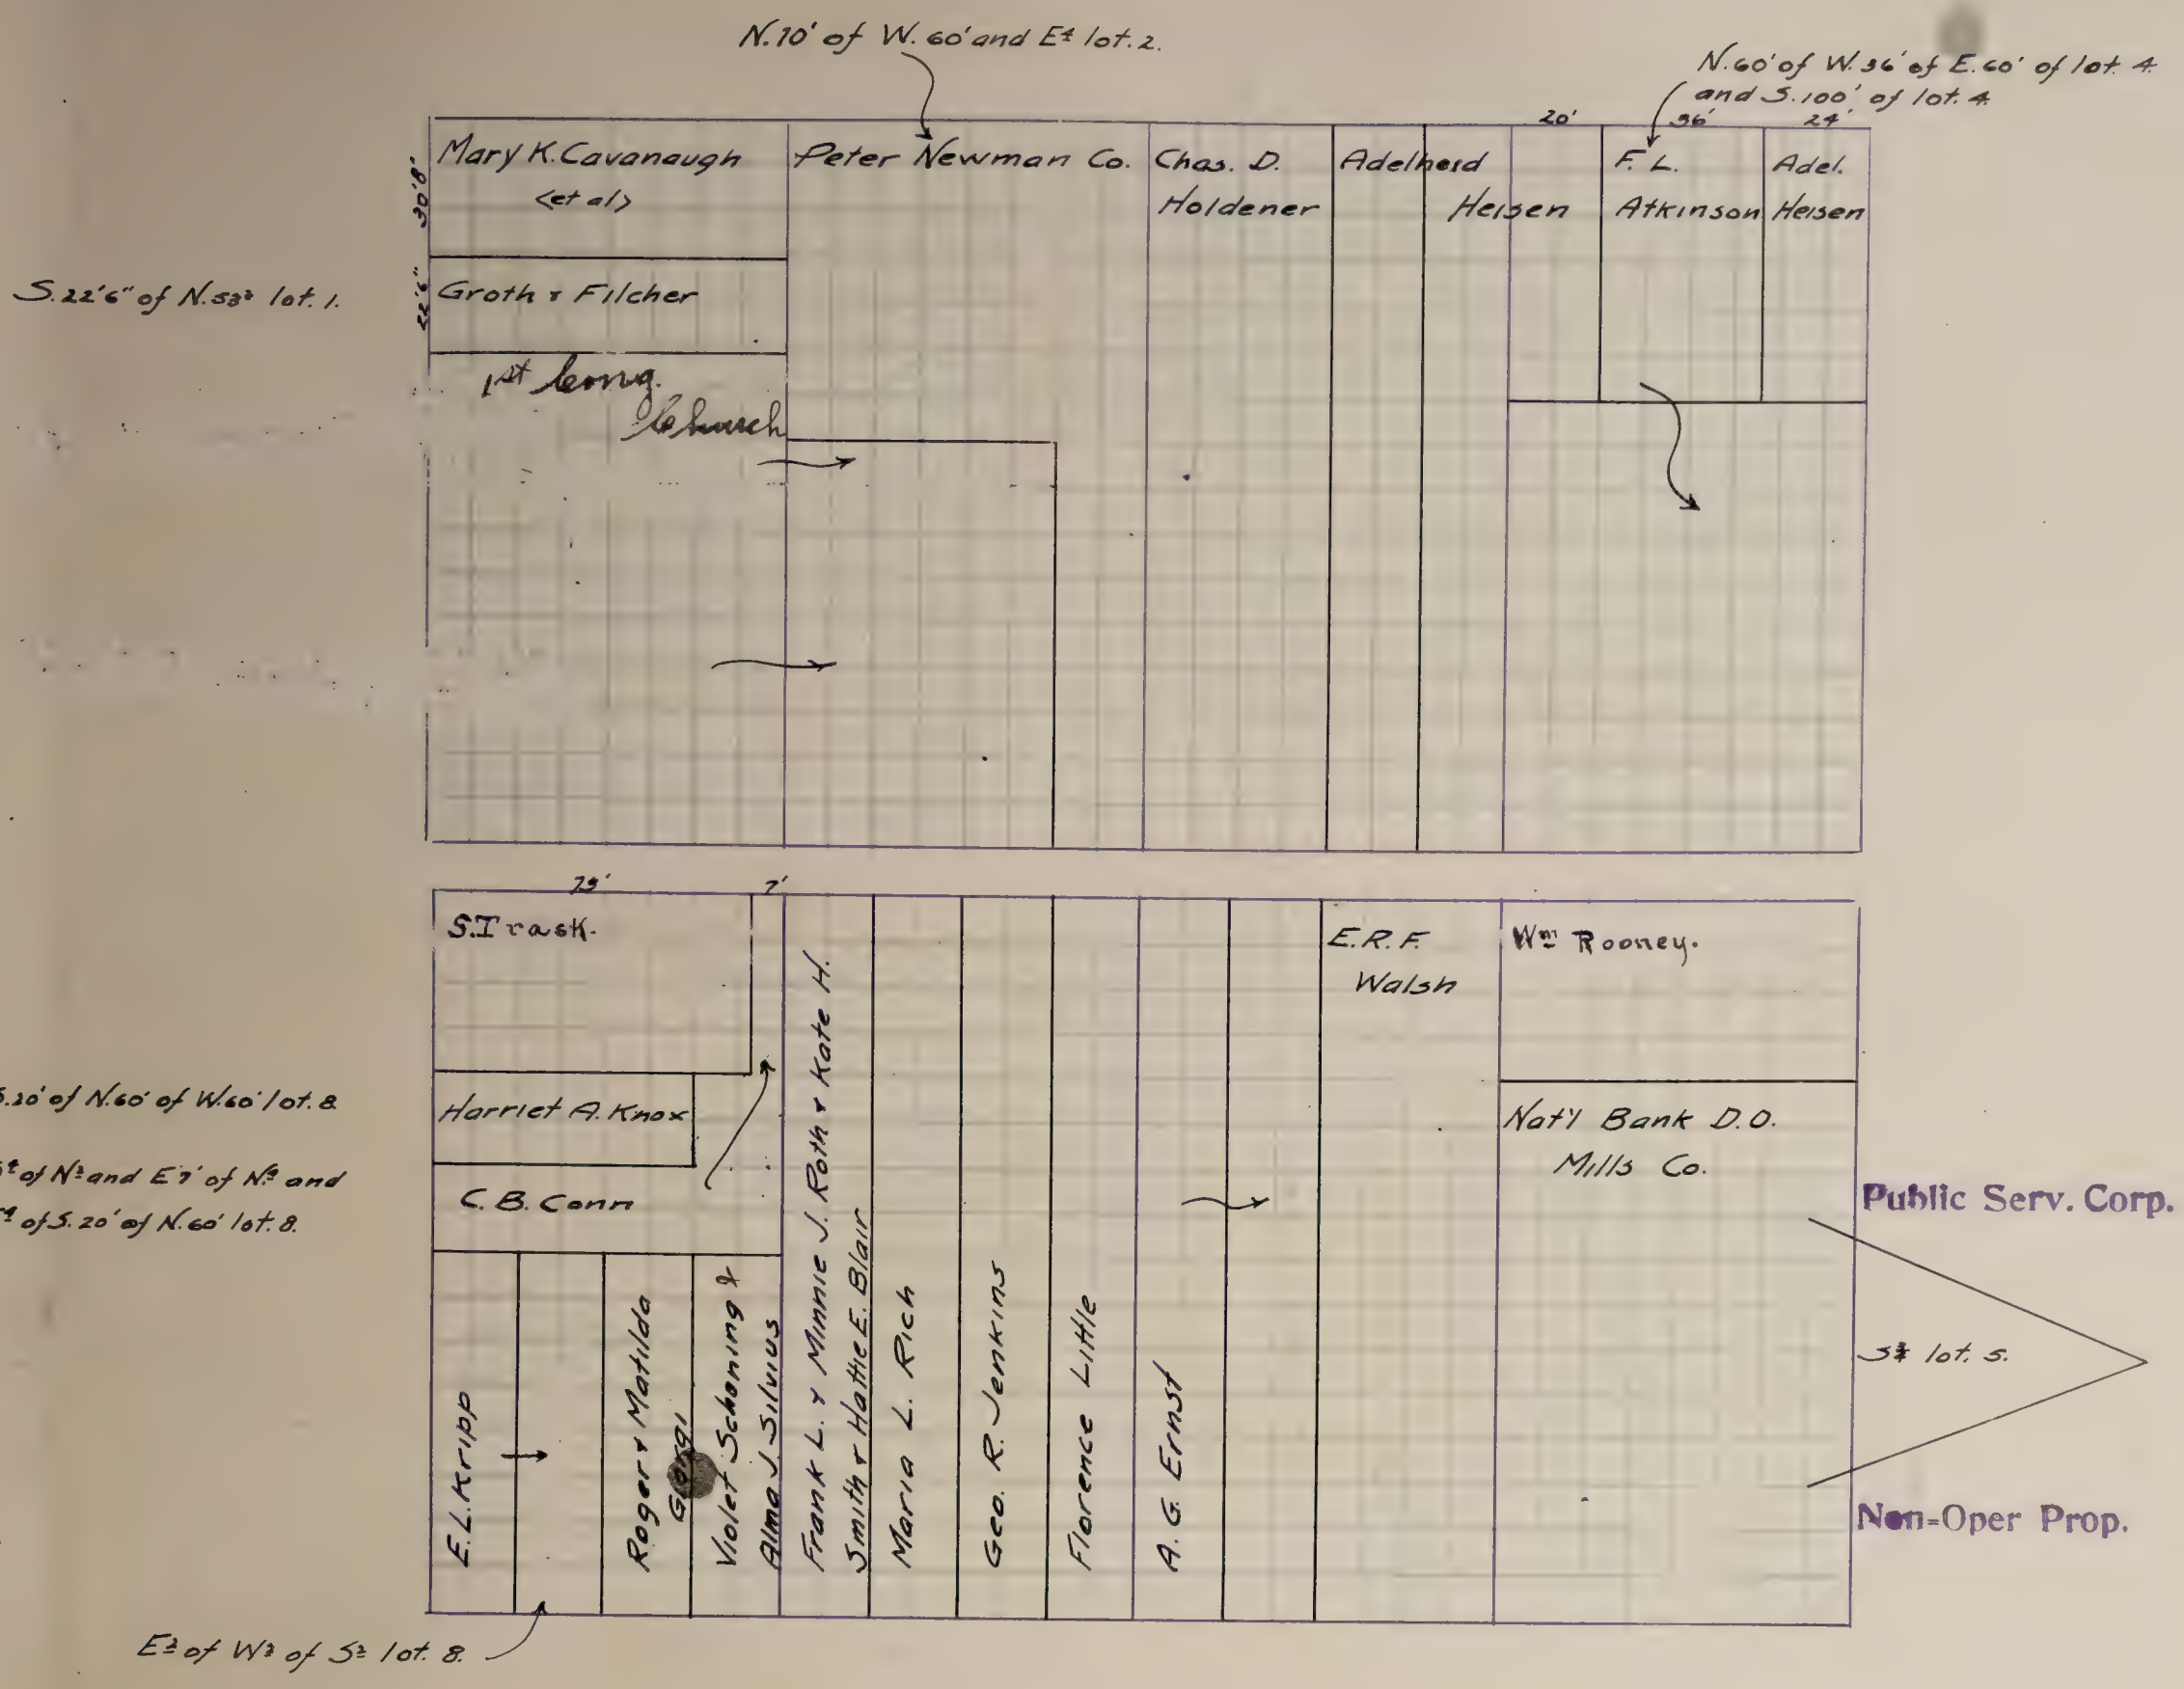 N.70' of W. 60' and E⁴ lot. 2.
N.60' of W.36' of E.60' of lot. 4.
and S.100' of lot. 4
20' 36' 24'
Mary K. Cavanaugh
<et al>
Peter Newman Co.
Chas. D.
Holdener
Adelheid
Heisen
F. L.
Atkinson
Adel.
Heisen
30'8"
S. 22'6" of N. 53² lot. 1.
22'6"
Groth & Filcher
1st Cong.
Church
73' 7'
S. Trask.
E. R. F.
Walsh
Wm Rooney.
S.20' of N.60' of W.60' lot. 8.
Harriet A. Knox
of N² and E 7' of N⁴ and
of S. 20' of N. 60' lot. 8.
C. B. Conn
Nat'l Bank D.O.
Mills Co.
Public Serv. Corp.
S¾ lot. 5.
Non-Oper Prop.
E. L. Kripp
Roger & Matilda
Giorgi
Violet Schoning &
Alma J. Silvius
Frank L. & Minnie J. Roth & Kate H.
Smith & Hattie E. Blair
Maria L. Rich
Geo. R. Jenkins
Florence Little
A. G. Ernst
E² of W² of S² lot. 8.